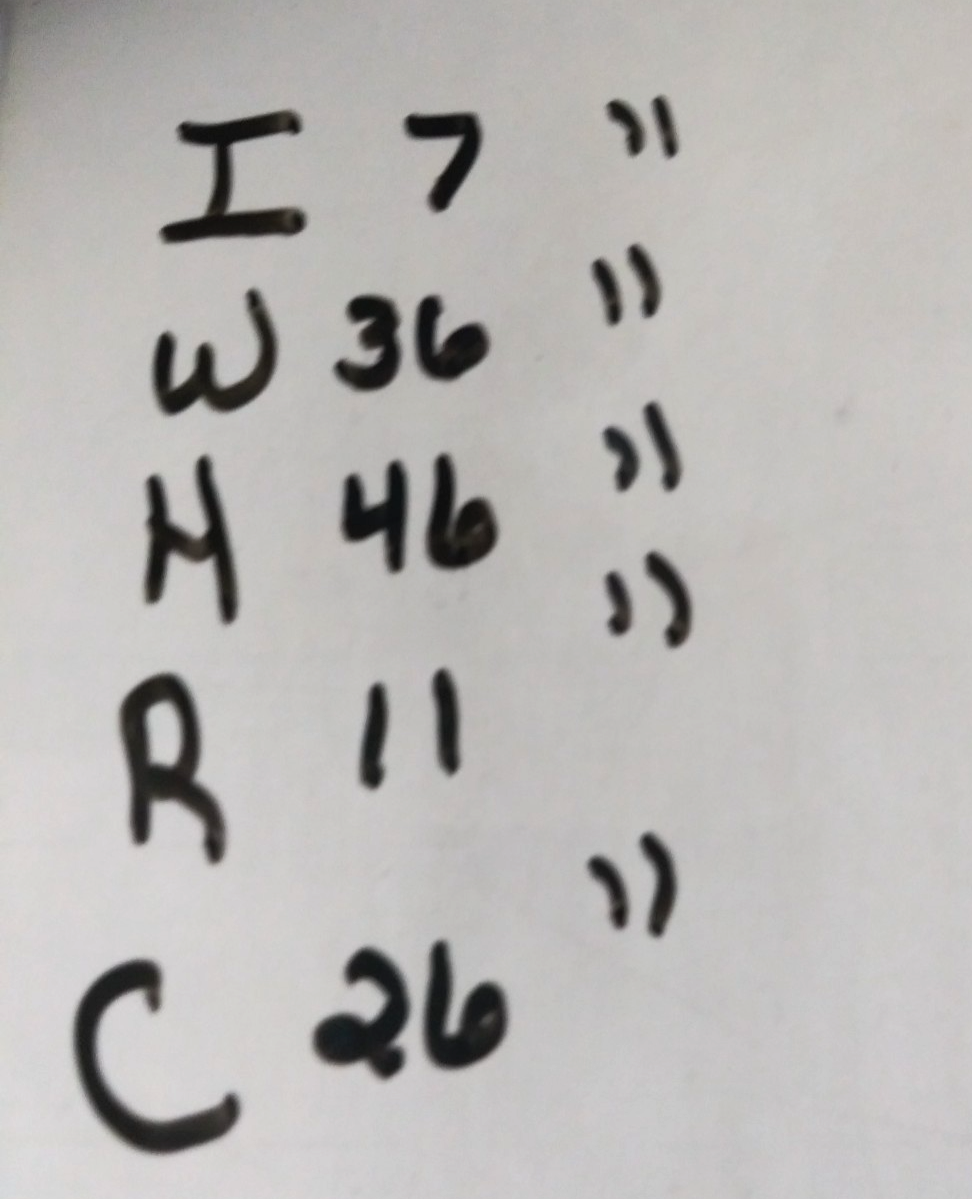 I 7 "
W 36 "
H 46 "
R 11 "
C 26 "